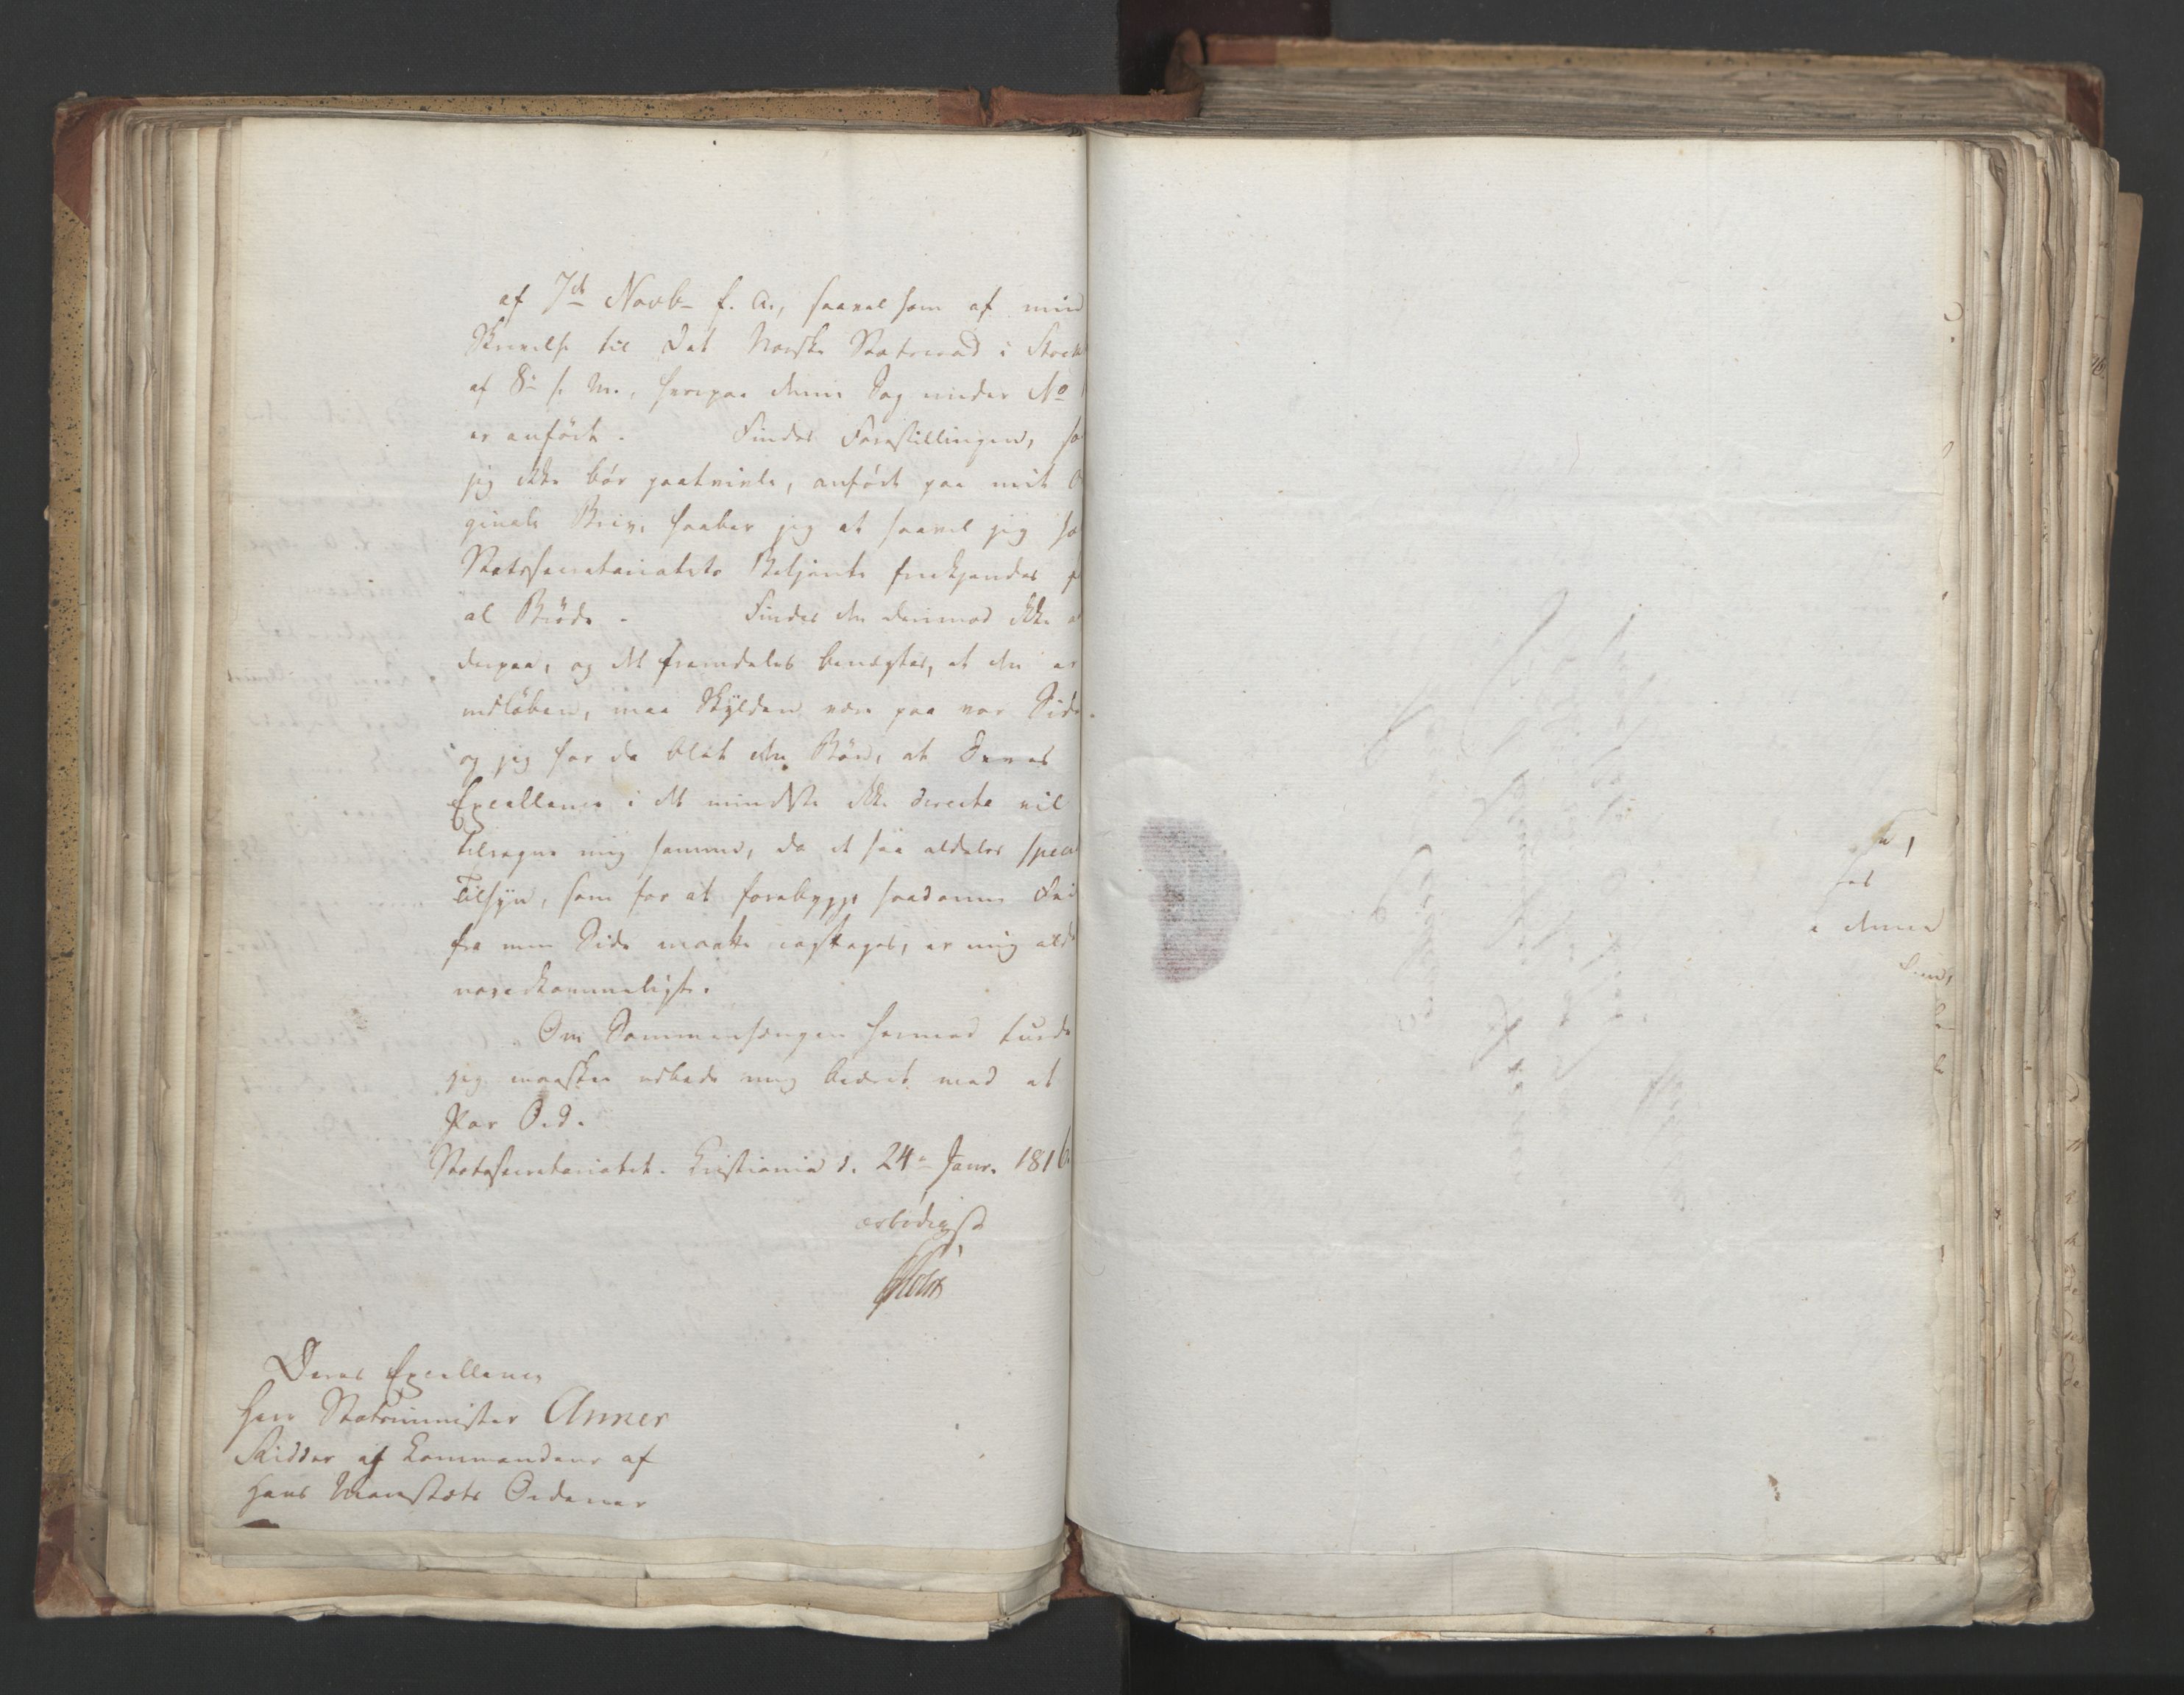 af 7de Novb f. A., saavel som af min
Skrivelse til det Norske Statsraad i Stock
af 8de s. M., hvorpaa denne Sag under No
er anført. Findes Forestillingen, so
jeg ikke bør paatvivle, anført paa mit O
ginale Brev, haaber jeg at saavel jeg so
Statssecretariatets Betjente frikjendes f
al Brøde. Findes den derimod ikke a
derpaa, og det fremdeles benægtes, at den er
indløben, maa Skylden være paa vor Side
og jeg har da blot den Bøn, at Deres
Excellence i det mindste ikke directe vil
tilregne mig samme, da et saa aldeles speci
Tilsyn, som for at forebygge saadanne Fei
fra min Side maatte iagttages, er mig alde
uoverkommeligt.
Om Sammenhængen hermed turde
jeg maaskee udbede mig beæret med et
Par Ord.
Statssecretariatet. Christiania d. 24de Janr. 1816
ærbødigst
Holst
Deres Excellence
Herr Statsminister Anker
Ridder af Commandeur af
Hans Majestæts Ordener
a denne